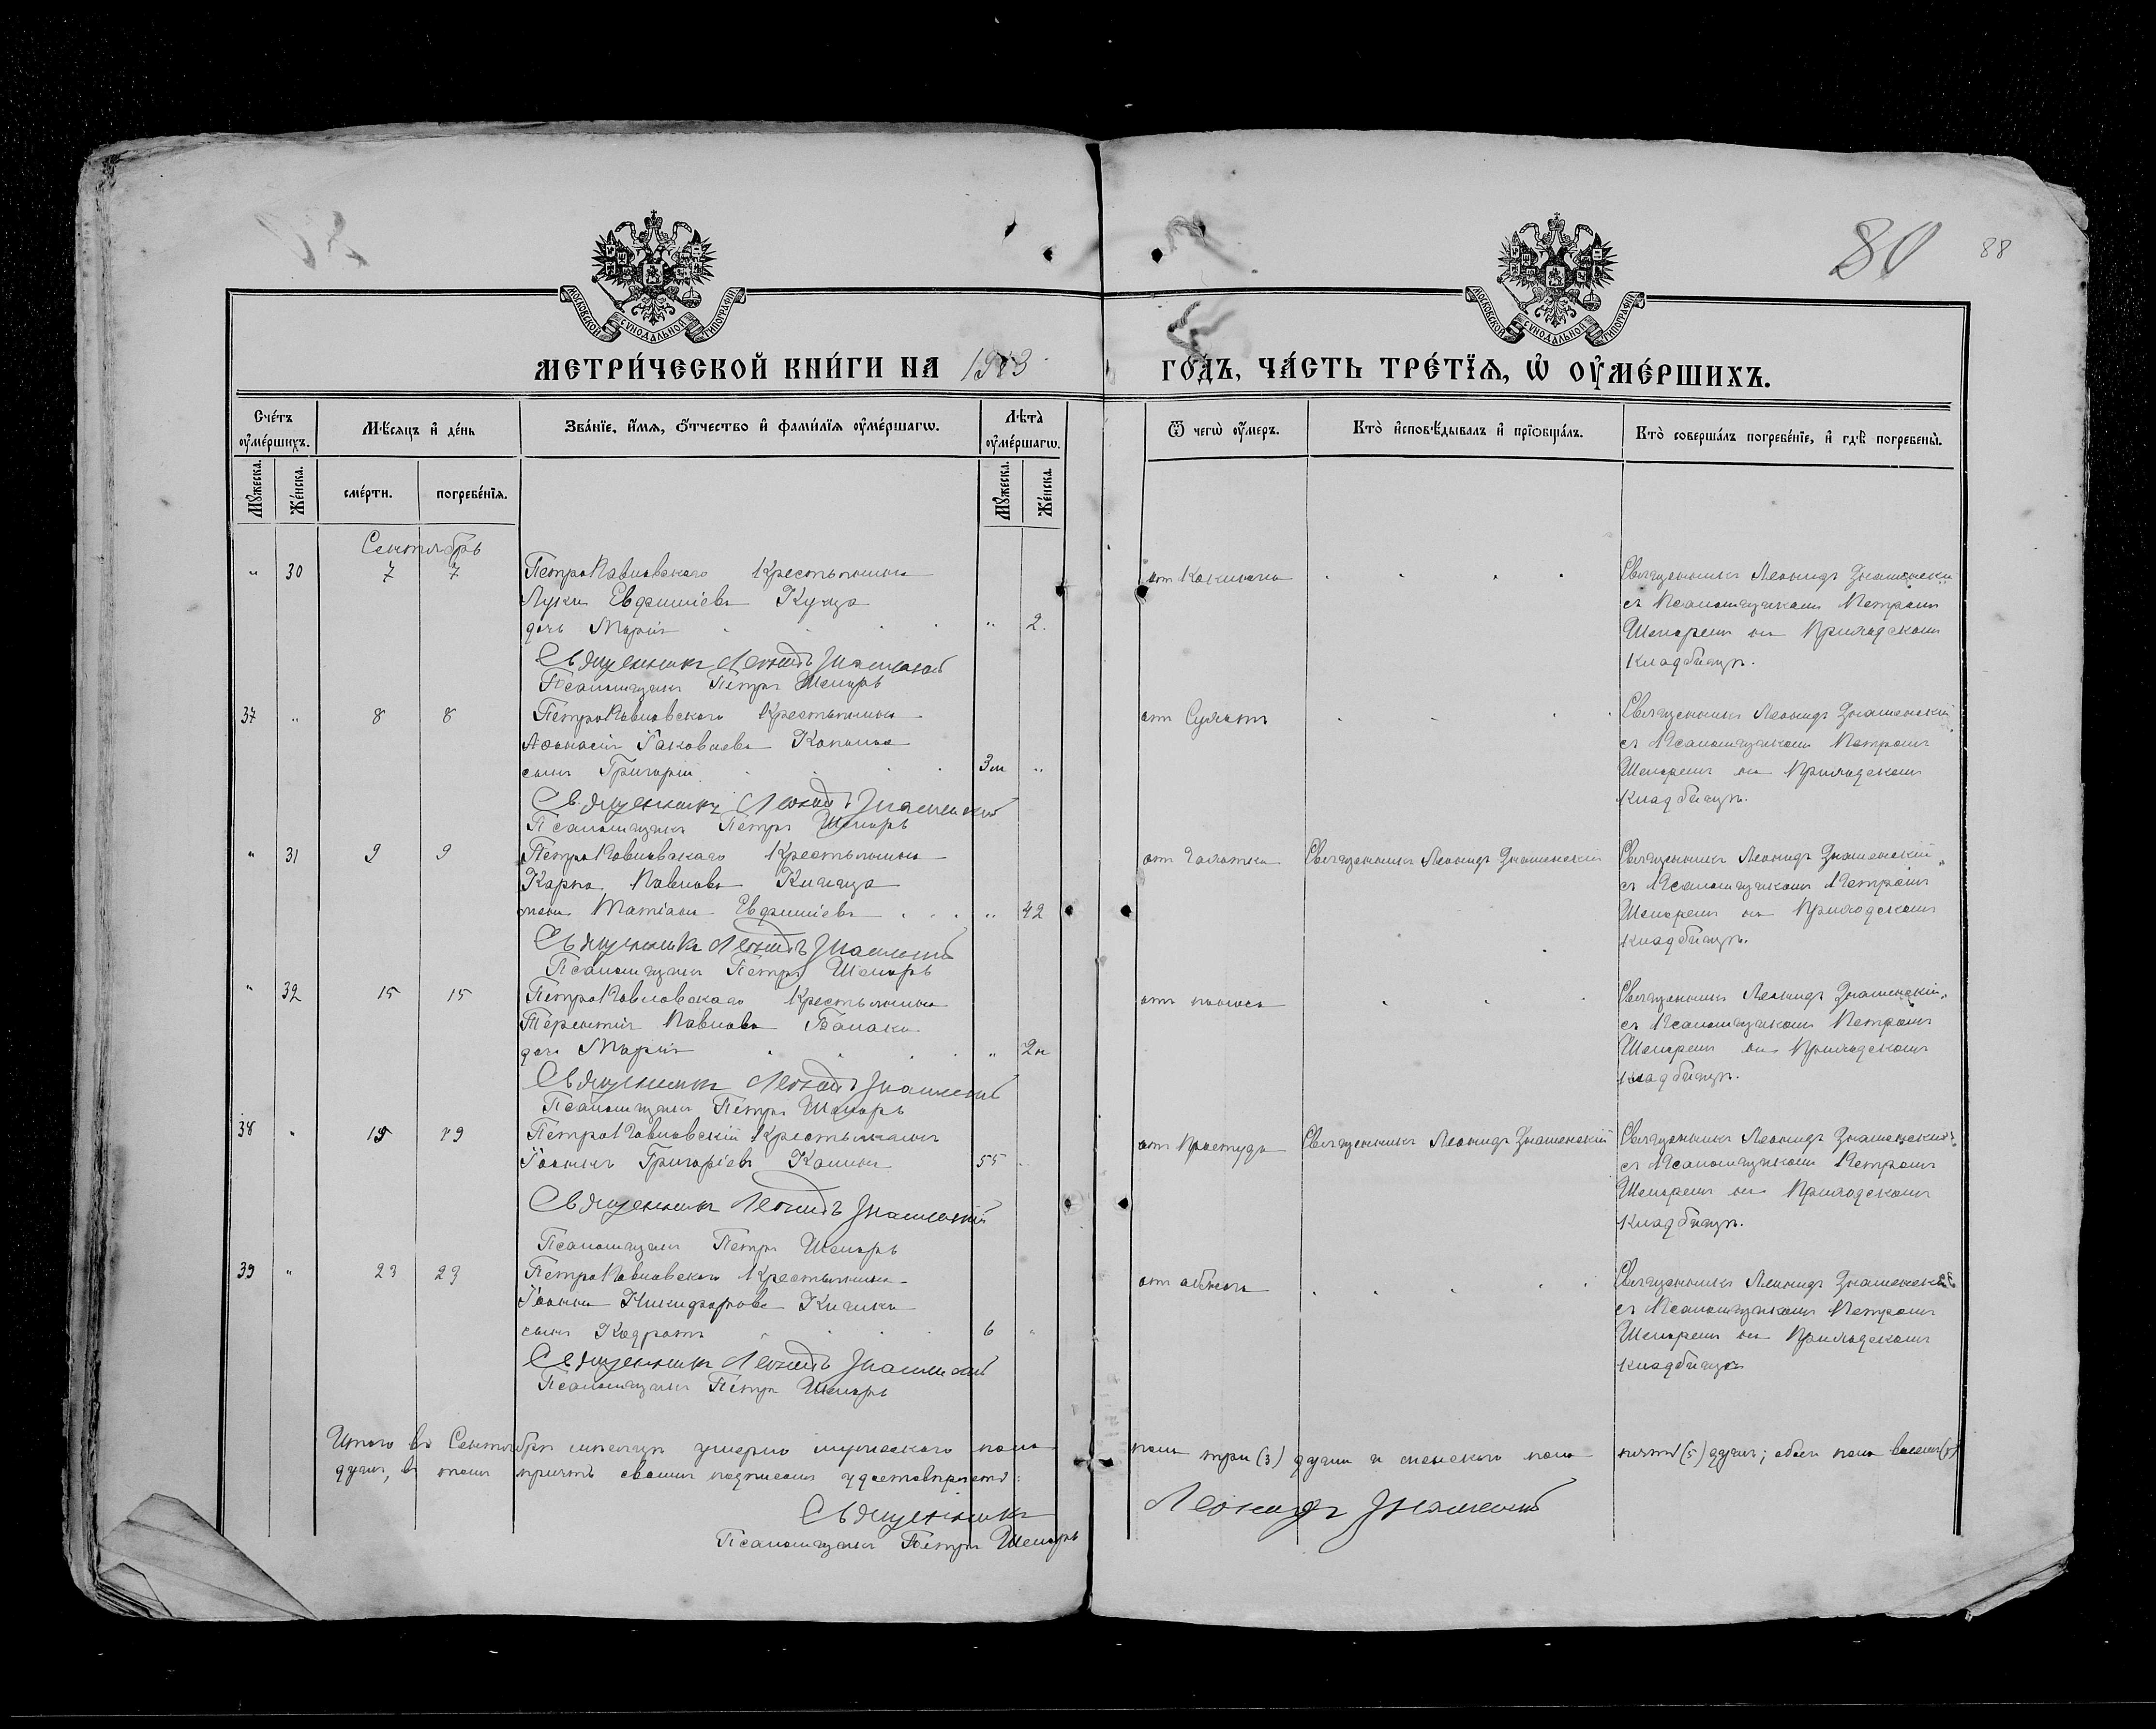 80
88
МОСКОВСКОЙ СѴНОДАЛЬНОЙ ТИПОГРАФІИ
МОСКОВСКОЙ СѴНОДАЛЬНОЙ ТИПОГРАФІИ
МЕТРИ́ЧЕСКОЙ КНИ́ГИ НА
ГО́ДЪ, ЧА́СТЬ ТРЕ́ТЇѦ, Ѡ҆ ОУ҆МЕ́РШИХЪ.
Сче́тъ оу҆ме́ршихъ.
Мꙋ́жеска.
Же́нска.
Мѣ́сѧцъ и҆ де́нь
сме́рти.
погребе́нїѧ.
Зва́нїе, и҆́мѧ, ѻ҆́тчество и҆ фами́лїѧ оу҆ме́ршагѡ.
Лѣ́та оу҆ме́ршагѡ.
Мꙋ́жеска.
Же́нска.
Ѿ чегѡ̀ оу҆́меръ.
Кто̀ и҆сповѣ́дывалъ и҆ прїѻбща́лъ.
Кто̀ соверша́лъ погребе́нїе, и҆ гдѣ̀ погребены̀.
Сентябрь
" 30 7 7 ПетроПавловскаго крестьянина
Луки Евфиміева
дочь Марія " 2.
Священникъ Леонидъ Знаменскій
Псаломщикъ Петръ
Священникъ Леонидъ Знаменскій
съ Псаломщикомъ Петромъ
на Приходскомъ
кладбищѣ.
37 " 8 8 ПетроПавловского крестьянина
Аѳанасія Іаковлева
сынъ Григорій 3м "
Священникъ Леонидъ Знаменскій
Псаломщикъ Петръ
Священникъ Леонидъ Знаменскій
съ Псаломщикомъ Петромъ
на Приходскомъ
кладбищѣ.
" 31 9 9 ПетроПавловскаго крестьянина
Карпа Павлова
жена Татіана Евфиміева " 42
Священникъ Леонидъ Знаменскій
Псаломщикъ Петръ
отъ чахотки Священникъ Леонидъ Знаменскій
Священникъ Леонидъ Знаменскій
съ Псаломщикомъ Петромъ
на Приходскомъ
кладбищѣ.
" 32 15 15 ПетроПавловскаго крестьянина
Терентія Павлова
дочь Марія " 2н
Священникъ Леонидъ Знаменскій
Псаломщикъ Петръ
отъ поноса
Священникъ Леонидъ Знаменскій
съ Псаломщикомъ Петромъ
на Приходскомъ
кладбищѣ.
38 " 19 19 ПетроПавловскій крестьянинъ
Іоаннъ Григоріевъ 55
Священникъ Леонидъ Знаменскій
Псаломщикъ Петръ
отъ простуды Священникъ Леонидъ Знаменскій
Священникъ Леонидъ Знаменскій
съ Псаломщикомъ Петромъ
на Приходскомъ
кладбищѣ.
39 " 23 23 ПетроПавловского крестьянина
Іоанна Никифорова
сынъ Кодратъ 6
Священникъ Леонидъ Знаменскій
Псаломщикъ Петръ
Священникъ Леонидъ Знаменскій
съ Псаломщикомъ Петромъ
на Приходскомъ
кладбищѣ
Итого въ Сентябрѣ мѣсяцѣ умерло мужеского пола
три (3) души и женского пола пять (5) душъ; обоего пола восемь (8)
душъ, въ томъ причтъ своимъ подписомъ удостовѣряетъ:
Священникъ Леонидъ Знаменскій
Псаломщикъ Петръ